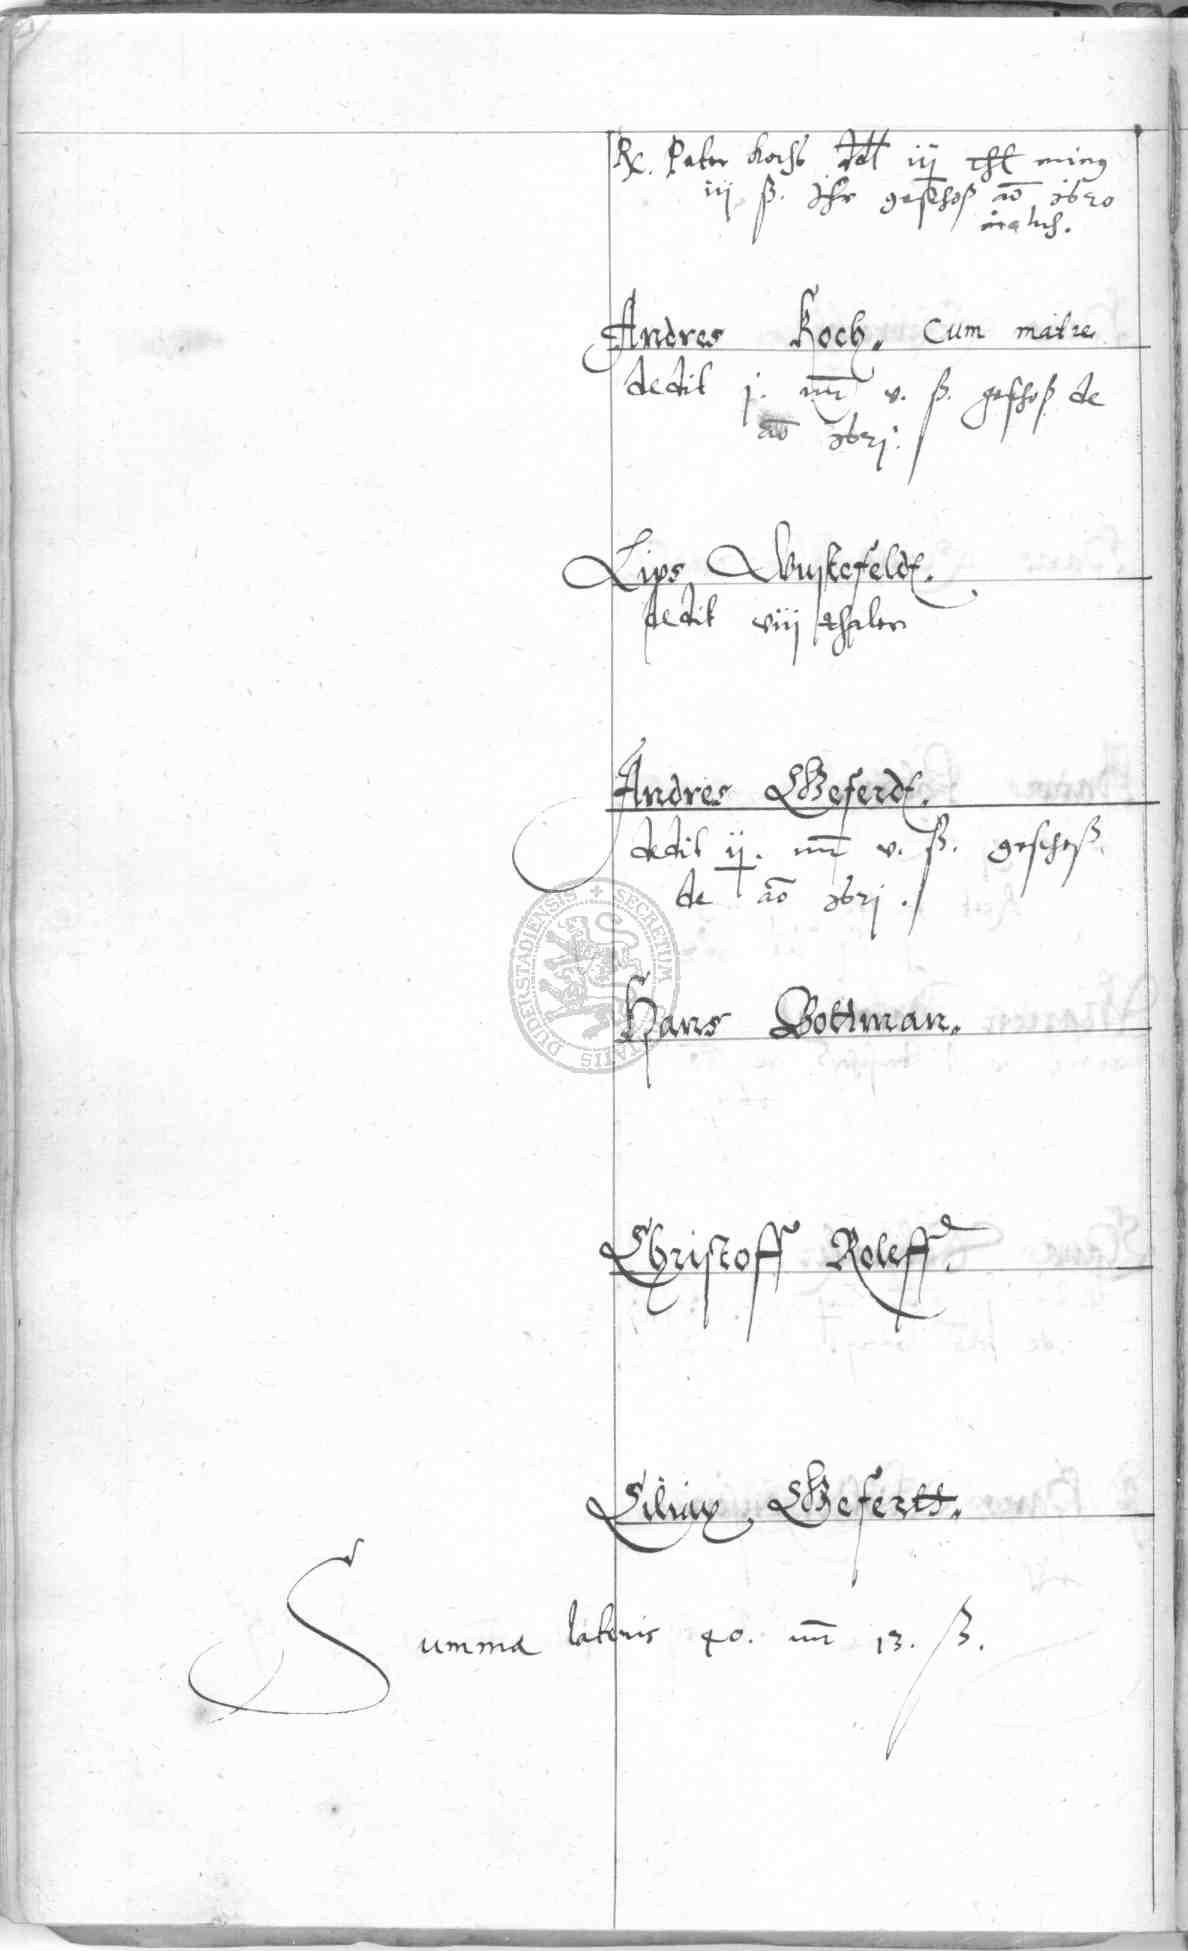 Rx. Peter Kochs ddt iij thl minq
iij ß. Ihr geschoß ao 1620
Andres Koch. Cum matre
dedit j. mr v. ß. geschoß de
ao 1621.
Lips Wustefeldt.
dedit viij thaler
Andres Weferdt.
dedit ij. mr v. ß. geschoß.
de ao 1621.
Hans Bottman.
Christoff Roleff.
Cilliax Wefertt.
Summa lateris 40. mr 13. ß.
SECRETUM
CIVITATIS DUDERSTADIENSIS